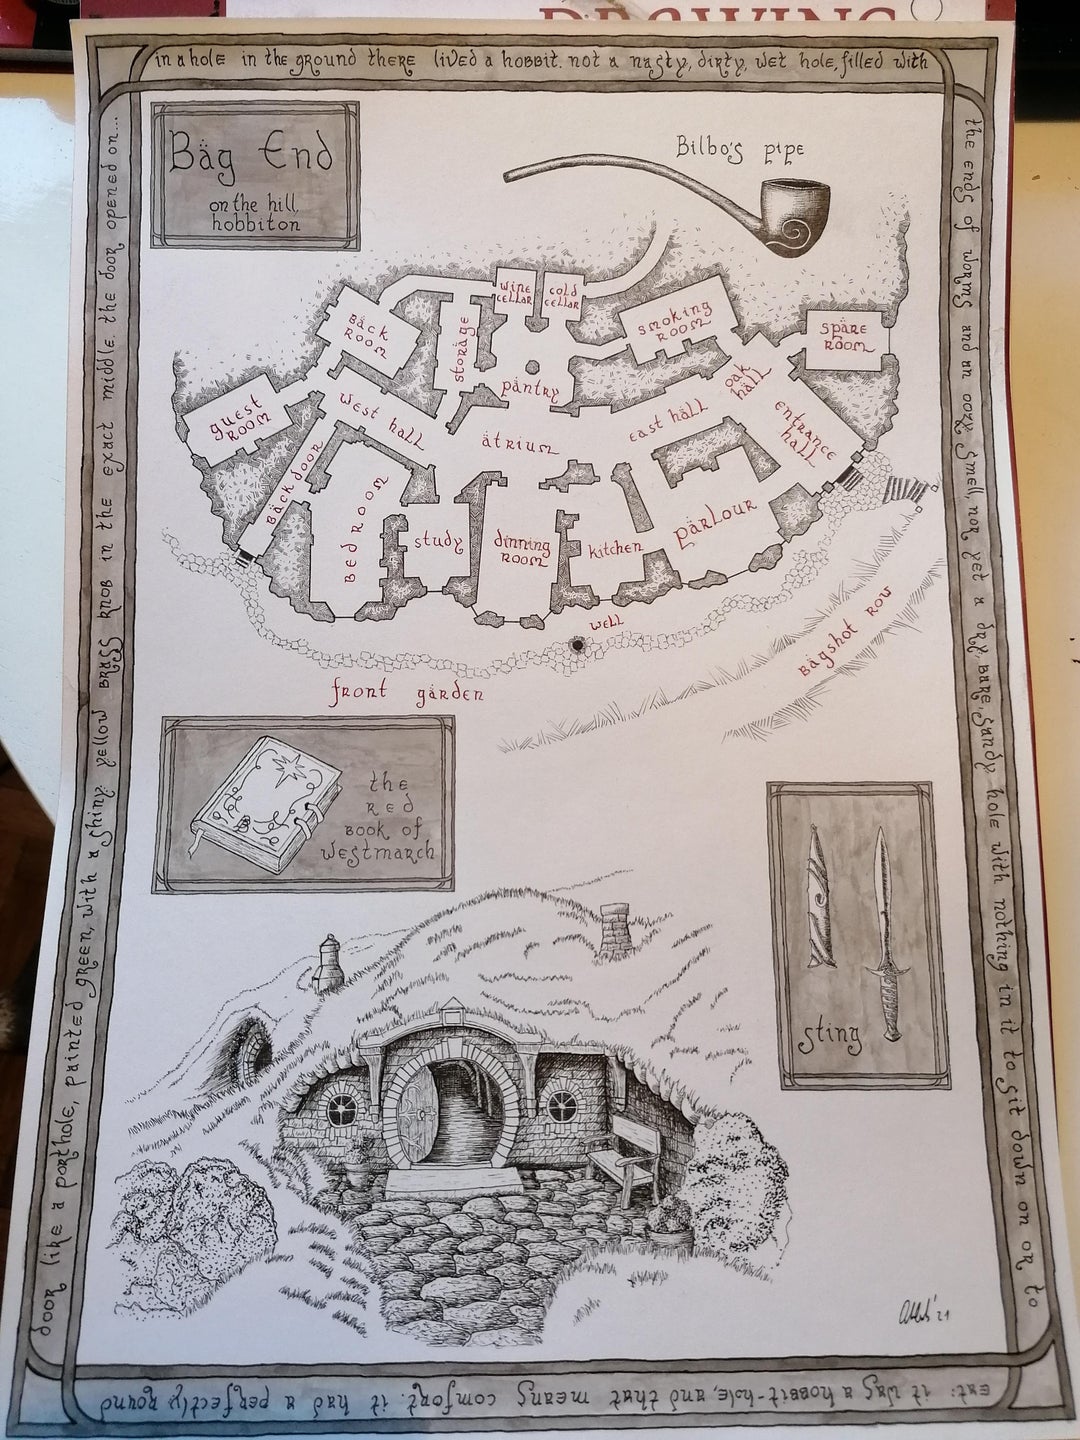 DRAWING
in a hole in the ground there lived a hobbit. not a nasty, dirty, wet hole, filled with
the ends of worms and an oozy smell, nor yet a dry, bare, sandy hole with nothing in it to sit down on or to
eat: it was a hobbit-hole, and that means comfort. it had a perfectly round
door like a porthole, painted green, with a shiny yellow brass knob in the exact middle. the door opened on...
Bäg End
on the hill,
hobbiton
Bilbo's pipe
wine
cellar
cold
cellar
Bäck
Room
storäge
smoking
room
späre
room
päntry
oak
häll
guest
room
west hall
ätrium
east häll
entränce
hall
Bäck door
Bedroom
study
dinning
room
kitchen
pärlour
well
Bägshot row
front gärden
the
red
book of
westmarch
sting
'21